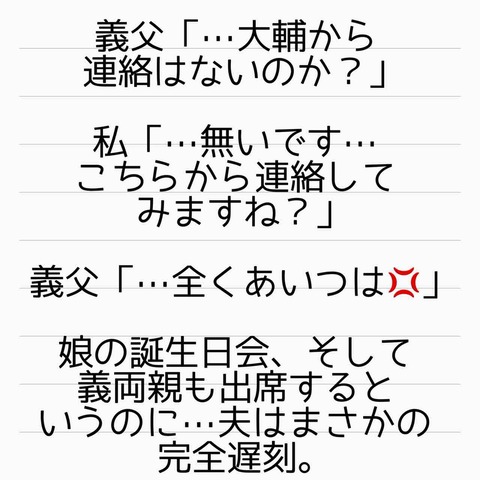 義父「…大輔から
連絡はないのか？」
私「…無いです…
こちらから連絡して
みますね？」
義父「…全くあいつは💢」
娘の誕生日会、そして
義両親も出席すると
いうのに…夫はまさかの
完全遅刻。